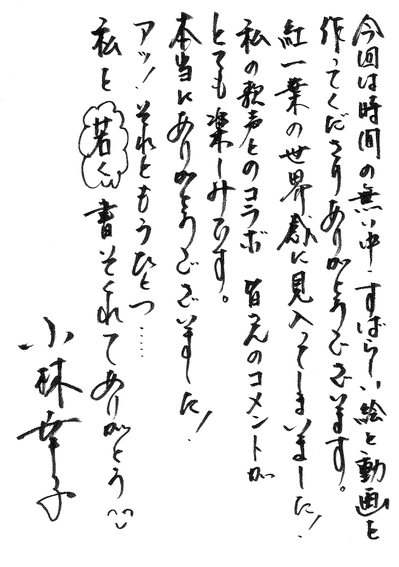 今回は時間の無い中、すばらしい絵と動画を
作ってくださりありがとうございます。
紅一葉の世界感に見入ってしまいました!
私の歌声とのコラボ 皆さんのコメントが
とても楽しみです。
本当にありがとうございました!
アッ!それともうひとつ……
私を若く書いてくれてありがとう
小林幸子